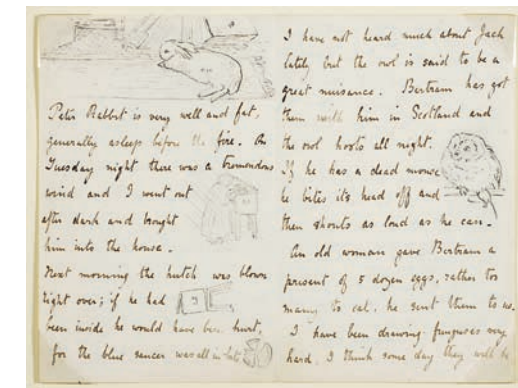 Peter Rabbit is very well and fat,
generally asleep before the fire. On
Tuesday night there was a tremendous
wind and I went out
after dark and brought
him into the house.
Next morning the hutch was blown
right over; if he had
been inside he would have been hurt,
for the blue saucer was all in bits
I have not heard much about Jack
lately but the owl is said to be a
great nuisance. Bertram has got
them with him in Scotland and
the owl hoots all night.
If he has a dead mouse
he bites its head off and
then shouts as loud as he can.
An old woman gave Bertram a
present of 5 dozen eggs, rather too
many to eat. he sent them to us.
I have been drawing funguses very
hard, I think some day they will be